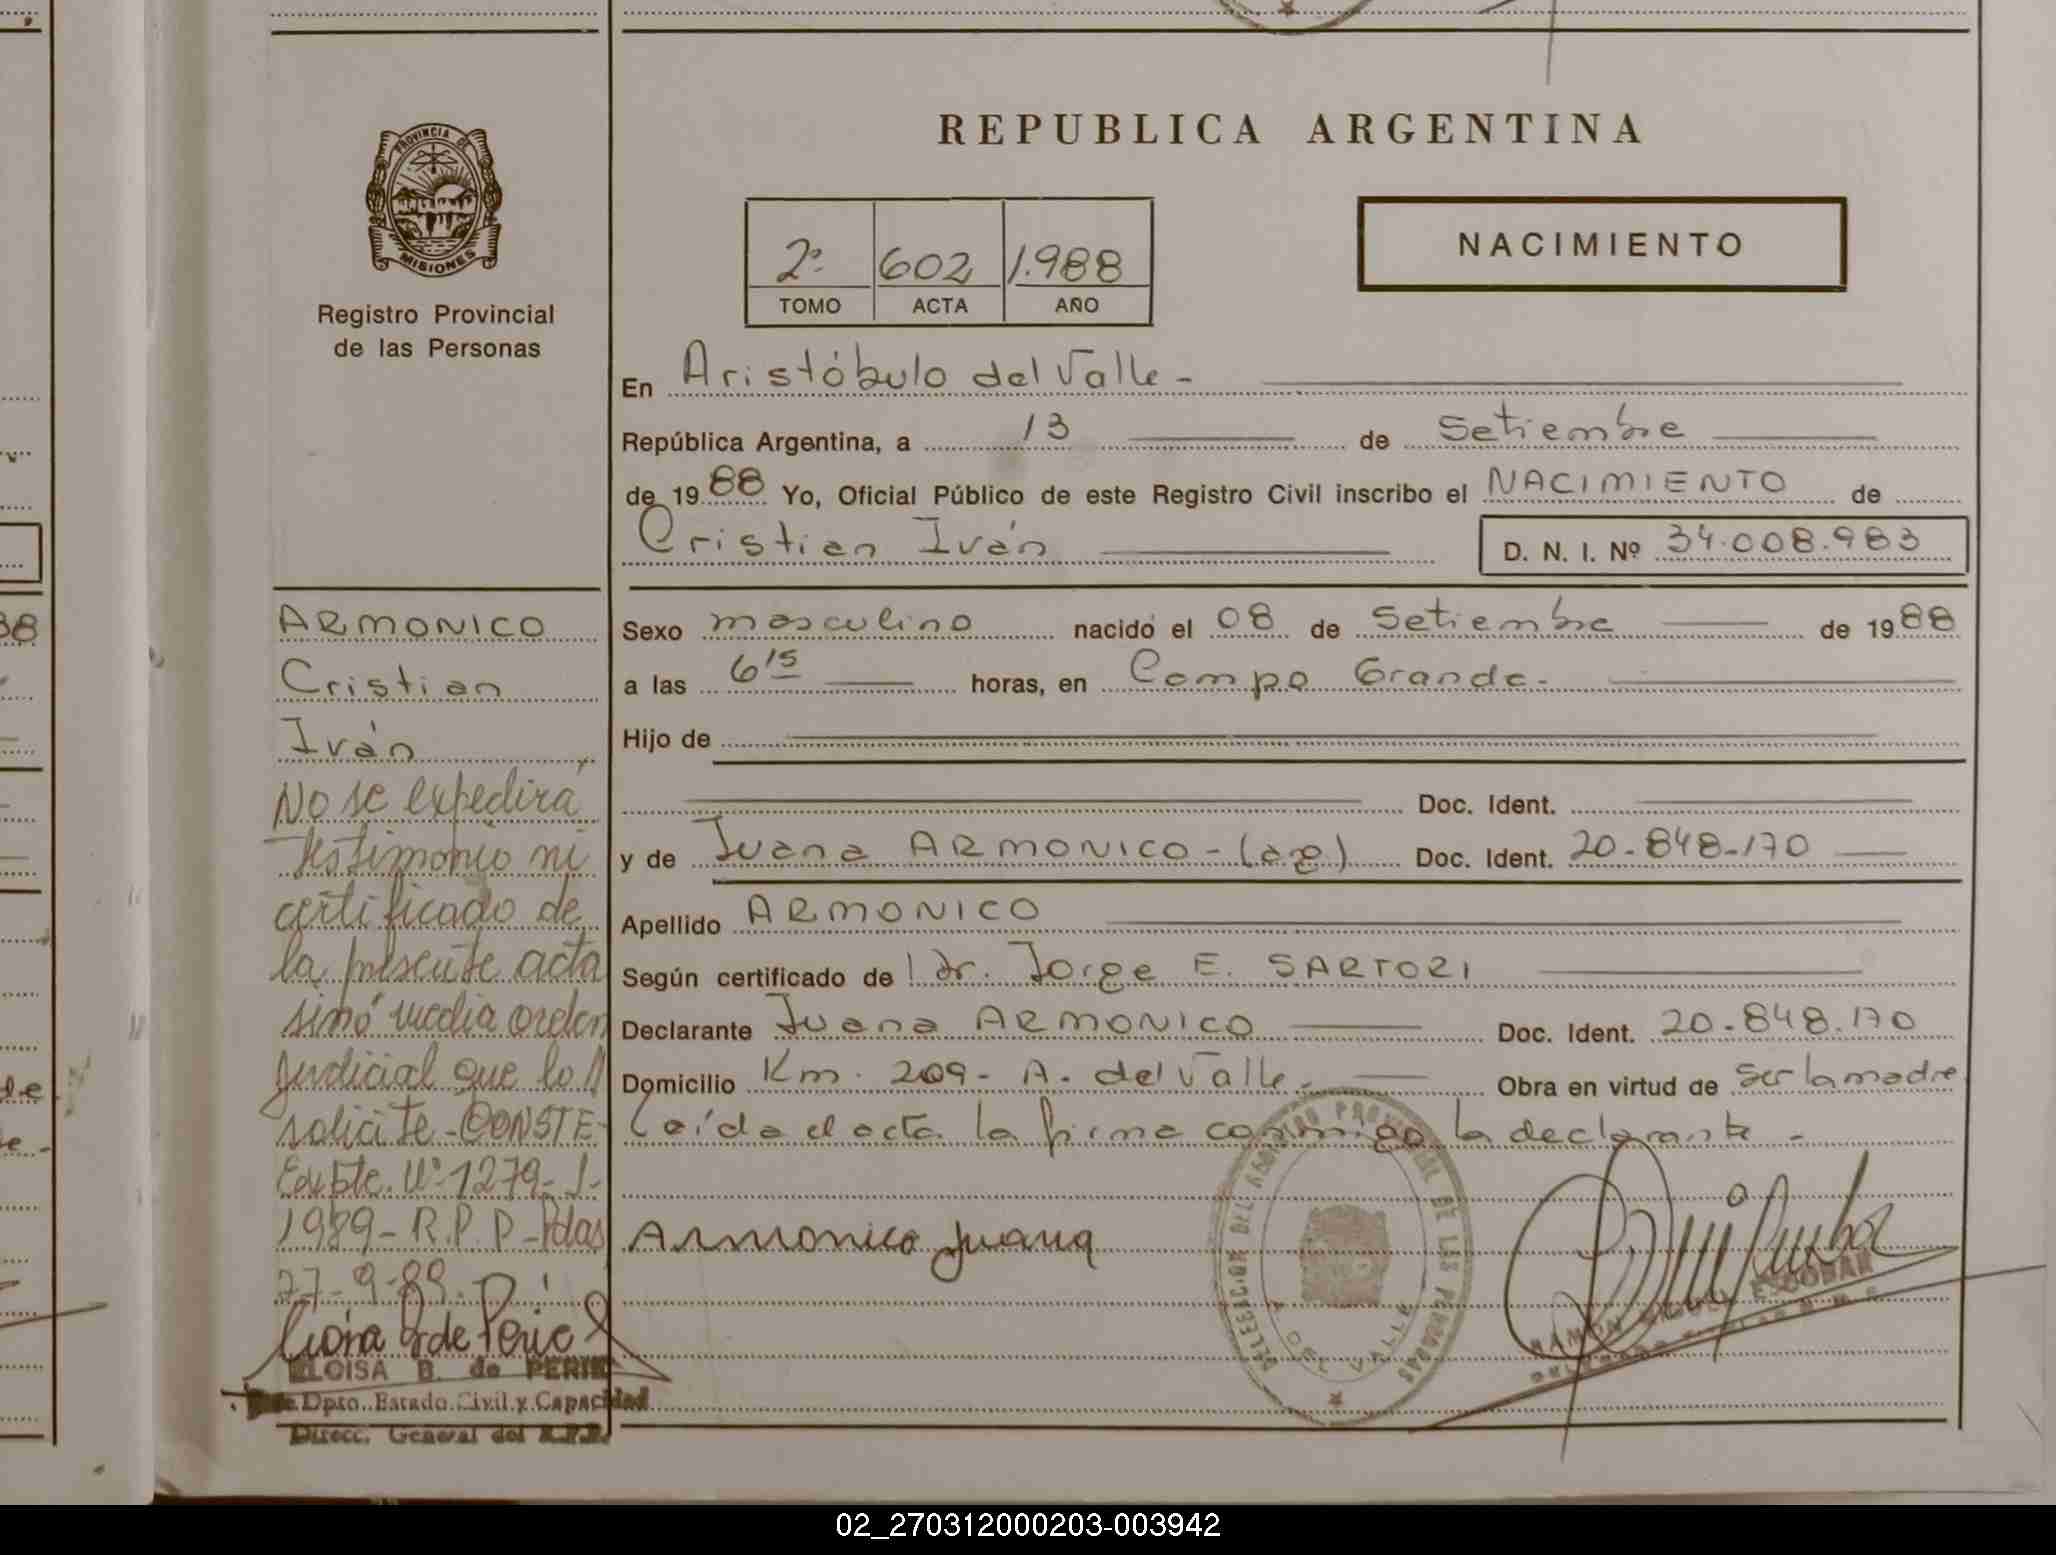 PROVINCIA DE
MISIONES
Registro Provincial
de las Personas
REPUBLICA ARGENTINA
2º 602 1.988
TOMO ACTA AÑO
NACIMIENTO
En Aristóbulo del Valle -
República Argentina, a 13 de Setiembre
de 19 88 Yo, Oficial Público de este Registro Civil inscribo el NACIMIENTO de
Cristian Iván D. N. I. Nº 34.008.983
Sexo masculino nacido el 08 de Setiembre de 19 88
a las 6 15 horas, en Campo Grande.
Hijo de
Doc. Ident.
y de Juana ARMONICO - (arg) Doc. Ident. 20-848-170
Apellido ARMONICO
Según certificado de Dr. Jorge E. SARTORI
Declarante Juana ARMONICO Doc. Ident. 20.848.170
Domicilio Km. 209 - A. del Valle. Obra en virtud de ser la madre
Leída el acta la firma conmigo la declarante -
Armonico Juana
DELEGACION DEL REGISTRO PROVINCIAL DE LAS PERSONAS
A. DEL VALLE
RAMON MIGUEL ESCOBAR
ARMONICO
Cristian
Iván
No se expedirá
testimonio ni
certificado de
la presente acta
sinó media orden
Judicial que lo
solicite - CONSTE-
Expte. Nº 1279- J-
1989 - R.P.P - Pdas
27-9-89.
ELOISA B. de PERIE
Dpto. Estado Civil y Capacidad
Direcc. General del R.P.P.
88
02_270312000203-003942